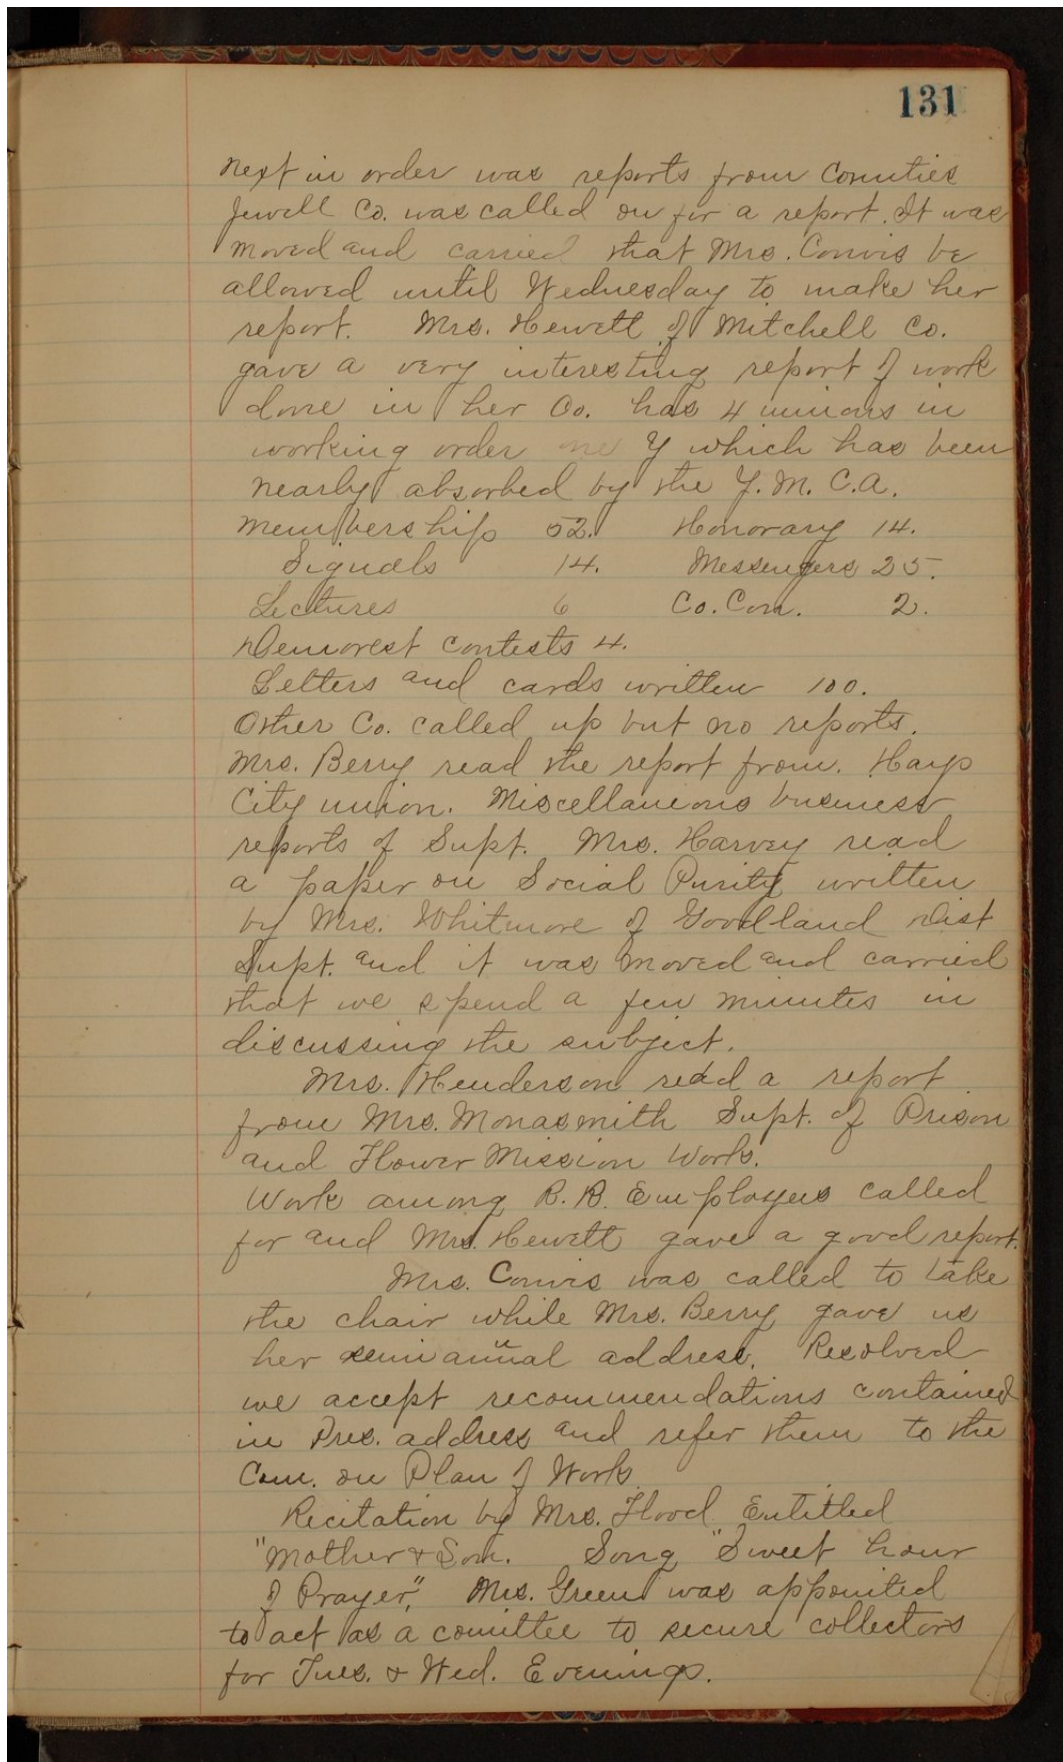 131
next in order was reports from Counties
Jewell Co. was called on for a report. It was
moved and carried that Mrs. Convis be
allowed until Wednesday to make her
report. Mrs. Hewett of Mitchell Co.
gave a very interesting report of work
done in her Co. has 4 unions in
working order one Y which has been
nearly absorbed by the Y.M.C.A.
Membership 52. Honorary 14.
Signals 14. Messengers 25.
Lectures 6 Co. Con. 2.
Demorest contests 4.
Letters and cards written 100.
Other Co. called up but no reports.
Mrs. Berry read the report from. Hays
City union. Miscellaneous business
reports of Supt. Mrs. Harvey read
a paper on Social Purity written
by Mrs. Whitmore of Goodland Dist
Supt. and it was moved and carried
that we spend a few minutes in
discussing the subject.
Mrs. Henderson read a report
from Mrs. Monasmith Supt. of Prison
and Flower Mission Work.
Work among R.R. Employees called
for and Mrs. Hewett gave a good report.
Mrs. Convis was called to take
the chair while Mrs. Berry gave us
her semi annual address. Resolved
we accept recommendations contained
in Pres. address and refer them to the
Com. on Plan of Work.
Recitation by Mrs. Flood Entitled
"Mother & Son. Song "Sweet hour
of Prayer," Mrs. Green was appointed
to act as a comittee to secure collectors
for Tues. & Wed. Evenings.